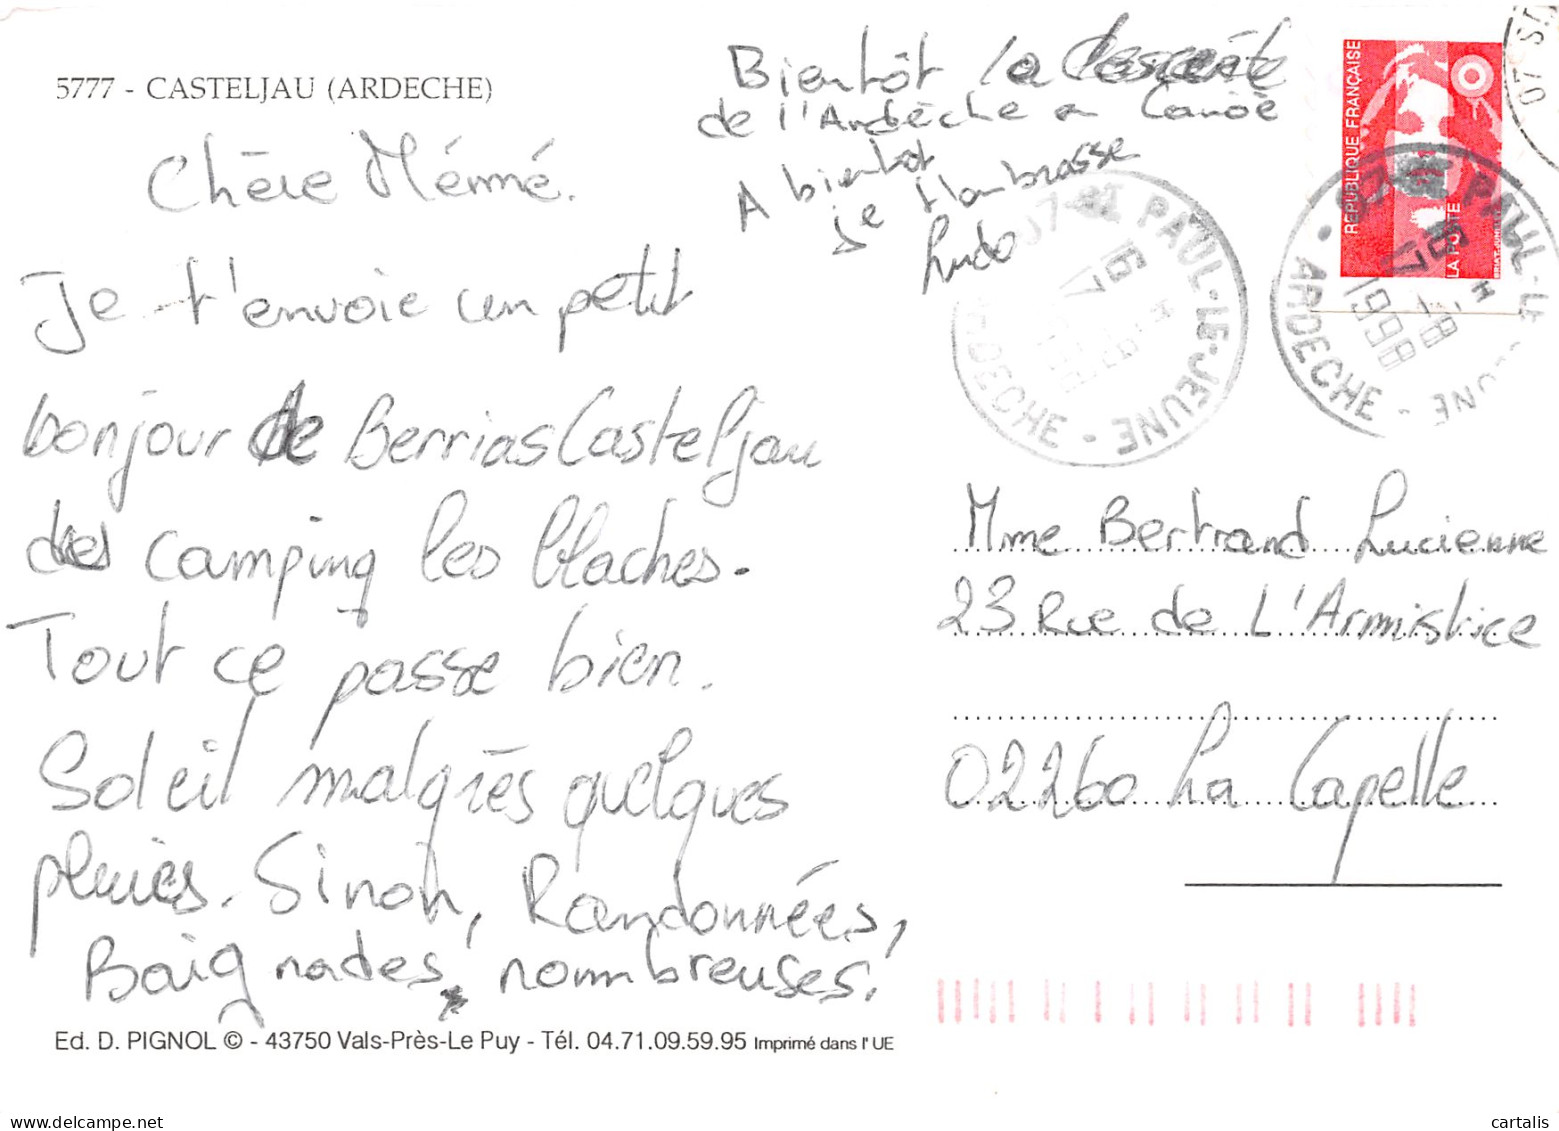 5777 - CASTELJAU (ARDECHE)
Chère Mémé.
Je t'envoie un petit
bonjour de Berrias Casteljau
des camping les blaches.
Tout ce passe bien.
Soleil malgrès quelques
pluies. Sinon, Randonnées,
Baignades, nombreuses.
Bientôt la descente
de l'Ardèche en Canoë
A bientot
je t'embrasse
Ludo
Ed. D. PIGNOL © - 43750 Vals-Près-Le Puy - Tél. 04.71.09.59.95 Imprimé dans l' UE
REPUBLIQUE FRANÇAISE
LA POSTE
07 ST PAUL-LE-JEUNE
ARDECHE
16 H
17-8
1998
07 ST PAUL-LE-JEUNE
ARDECHE
16 H
07 ST
Mme Bertrand Lucienne
23 Rue de L'Armistice
02260 La Capelle
cartalis